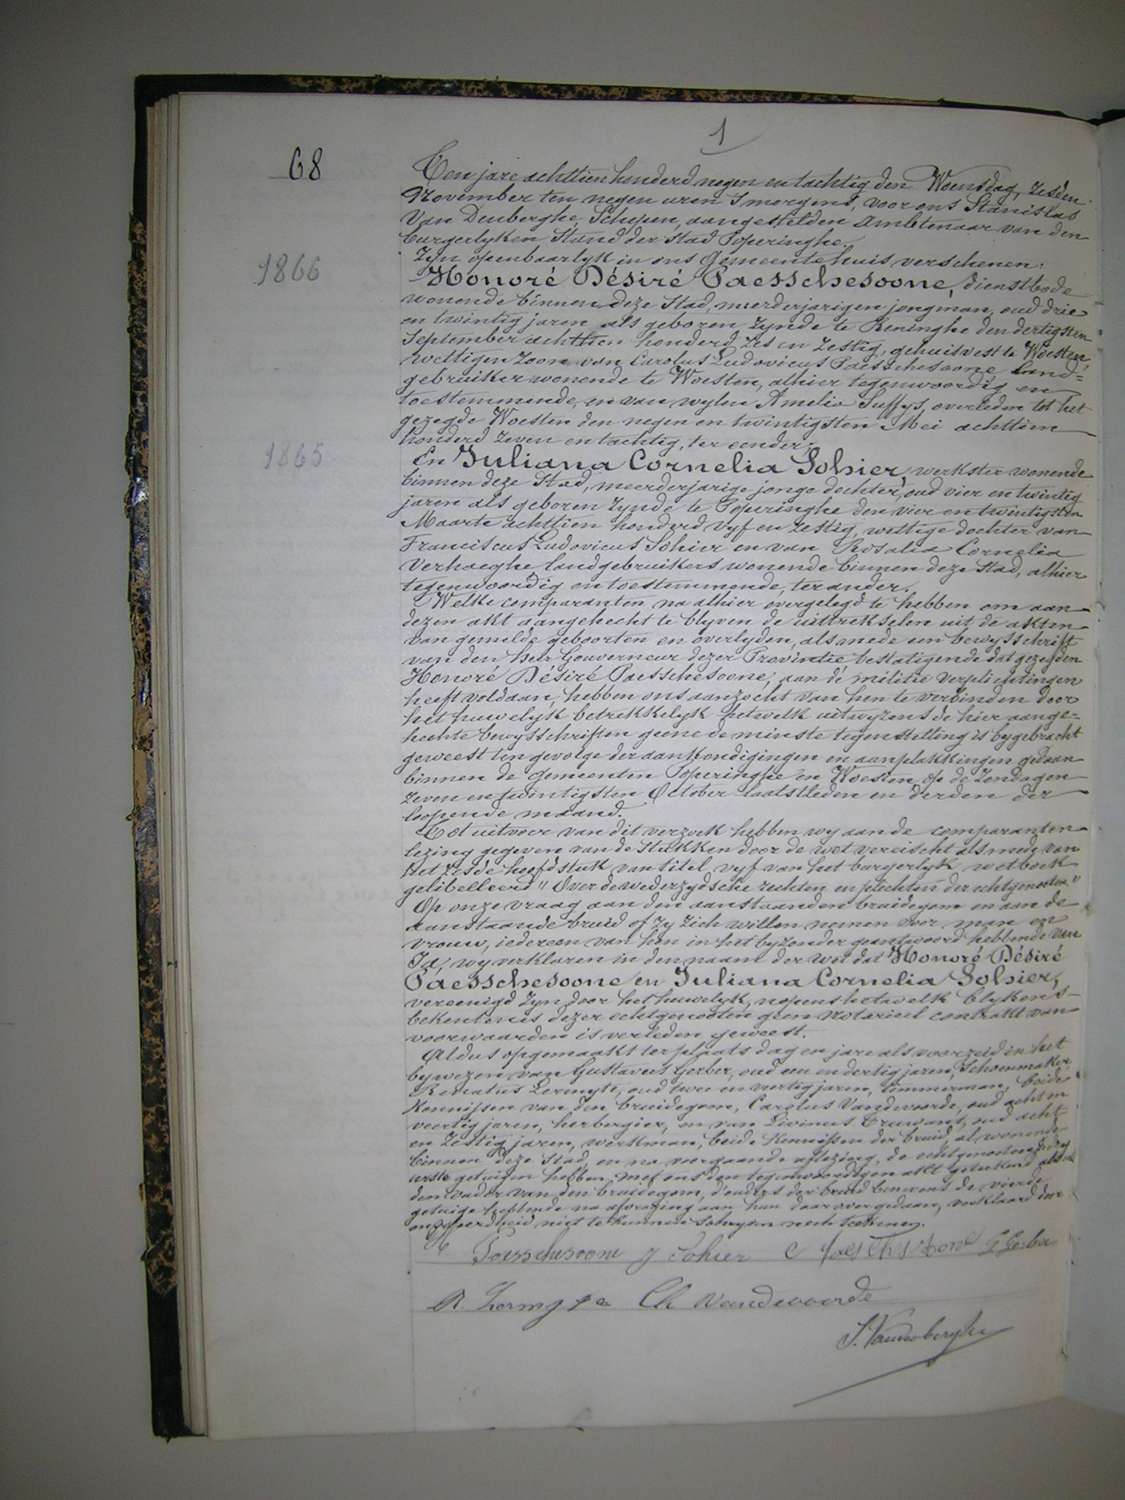 1
68
Ten jare achttien honderd negen en tachtig den Woensdag, zesden
November ten negen uren 's morgens, voor ons Stanislas
Van Denberghe, Schepen, aangestelden Ambtenaar van den
burgerlyken Stand der Stad Poperinghe.
Zyn openbaarlyk in ons Gemeentehuis verschenen:
1866
Honoré Désiré Paesschesoone, dienstbode
wonende binnen deze Stad, meerderjarigen jongman, oud drie
en twintig jaren, als geboren zynde te Reninghe den dertigsten
September achttien honderd zes en zestig, gehuisvest te Woesten,
wettigen zoon van Carolus Ludovicus Paesschesoone, land=
gebruiker wonende te Woesten, alhier tegenwoordig en
toestemmende, en van wylen Amelia Suffys, overleden tot het
gezegde Woesten den negen en twintigsten Mei achttien
honderd zeven en tachtig, ter eender;
1865
En Juliana Cornelia Sohier, werkster wonende
binnen deze Stad, meerderjarige jonge dochter, oud vier en twintig
jaren als geboren zynde te Poperinghe den vier en twintigsten
Maarte achttien honderd vyf en zestig, wettige dochter van
Franciscus Ludovicus Sohier en van Rosalia Cornelia
Verhaeghe landgebruikers wonende binnen deze Stad, alhier
tegenwoordig en toestemmende, ter ander.
Welke comparanten na alhier overgelegd te hebben om aan
dezen akt aangehecht te blyven de uittrekselen uit de akten
van gemelde geboorten en overlyden, alsmede een bewysschrift
van den heer Gouverneur dezer Provintie bestatigende dat gezegden
Honoré Désiré Paesschesoone, aan de militie verplichtingen
heeft voldaan, hebben ons aanzocht van hen te verbinden door
het huwelyk betrekkelyk hetwelk uitwyzens de hier aange=
hechte bewysschriften geene de minste tegenstelling is bygebracht
geweest ten gevolge der aankondigingen en aanplakkingen gedaan
binnen de gemeenten Poperinghe en Woesten op de Zondagen
zeven en twintigsten October laatstleden en derden der
loopende maand.
Tot uitvoer van dit verzoek hebben wy aan de comparanten
lezing gegeven van de stukken door de wet vereischt alsmede van
het zesde hoofdstuk van titel vyf van het burgerlyk wetboek
gelibelleerd "Over de wederzydsche rechten en plichten der echtgenooten."
Op onze vraag aan den aanstaanden bruidegom en aan de
aanstaande bruid of zy zich willen nemen voor man en
vrouw, iedereen van hen in het byzonder geantwoord hebbende van
Ja, wy verklaren in den naam der wet dat Honoré Désiré
Paesschesoone en Juliana Cornelia Sohier,
vereenigd zyn door het huwelyk, nopens hetwelk blykens
bekentenis dezer echtgenooten geen notarieel contrakt van
voorwaarden is verleden geweest.
Aldus opgemaakt ter plaats dag en jare als voorzeid in het
bywezen van Gustavus Gerber, oud een en dertig jaren, Schoenmaker,
Renatus Lermyte, oud twee en veertig jaren, timmerman, beide
kennissen van den bruidegom, Carolus Vandevoorde, oud acht en
veertig jaren, herbergier, en van Livinus Truwant, oud acht
en zestig jaren, werkman, beide kennissen der bruid, al wonende
binnen deze Stad, en na voorgaande aflezing, de echtgenooten de dry
eerste getuigen hebben met ons den tegenwoordigen akt geteekend alsook
den vader van den bruidegom, d'ouders der bruid benevens de vierde
getuige hebbende na afvraging aan hun daarover gedaan, verklaard door
ongeleerdheid niet te kunnen schryven noch teekenen.
H Paesschesoone J Sohier C Paesschesoone G Gerber
R. Lermyte Ch Vandevoorde
S. Vandenberghe